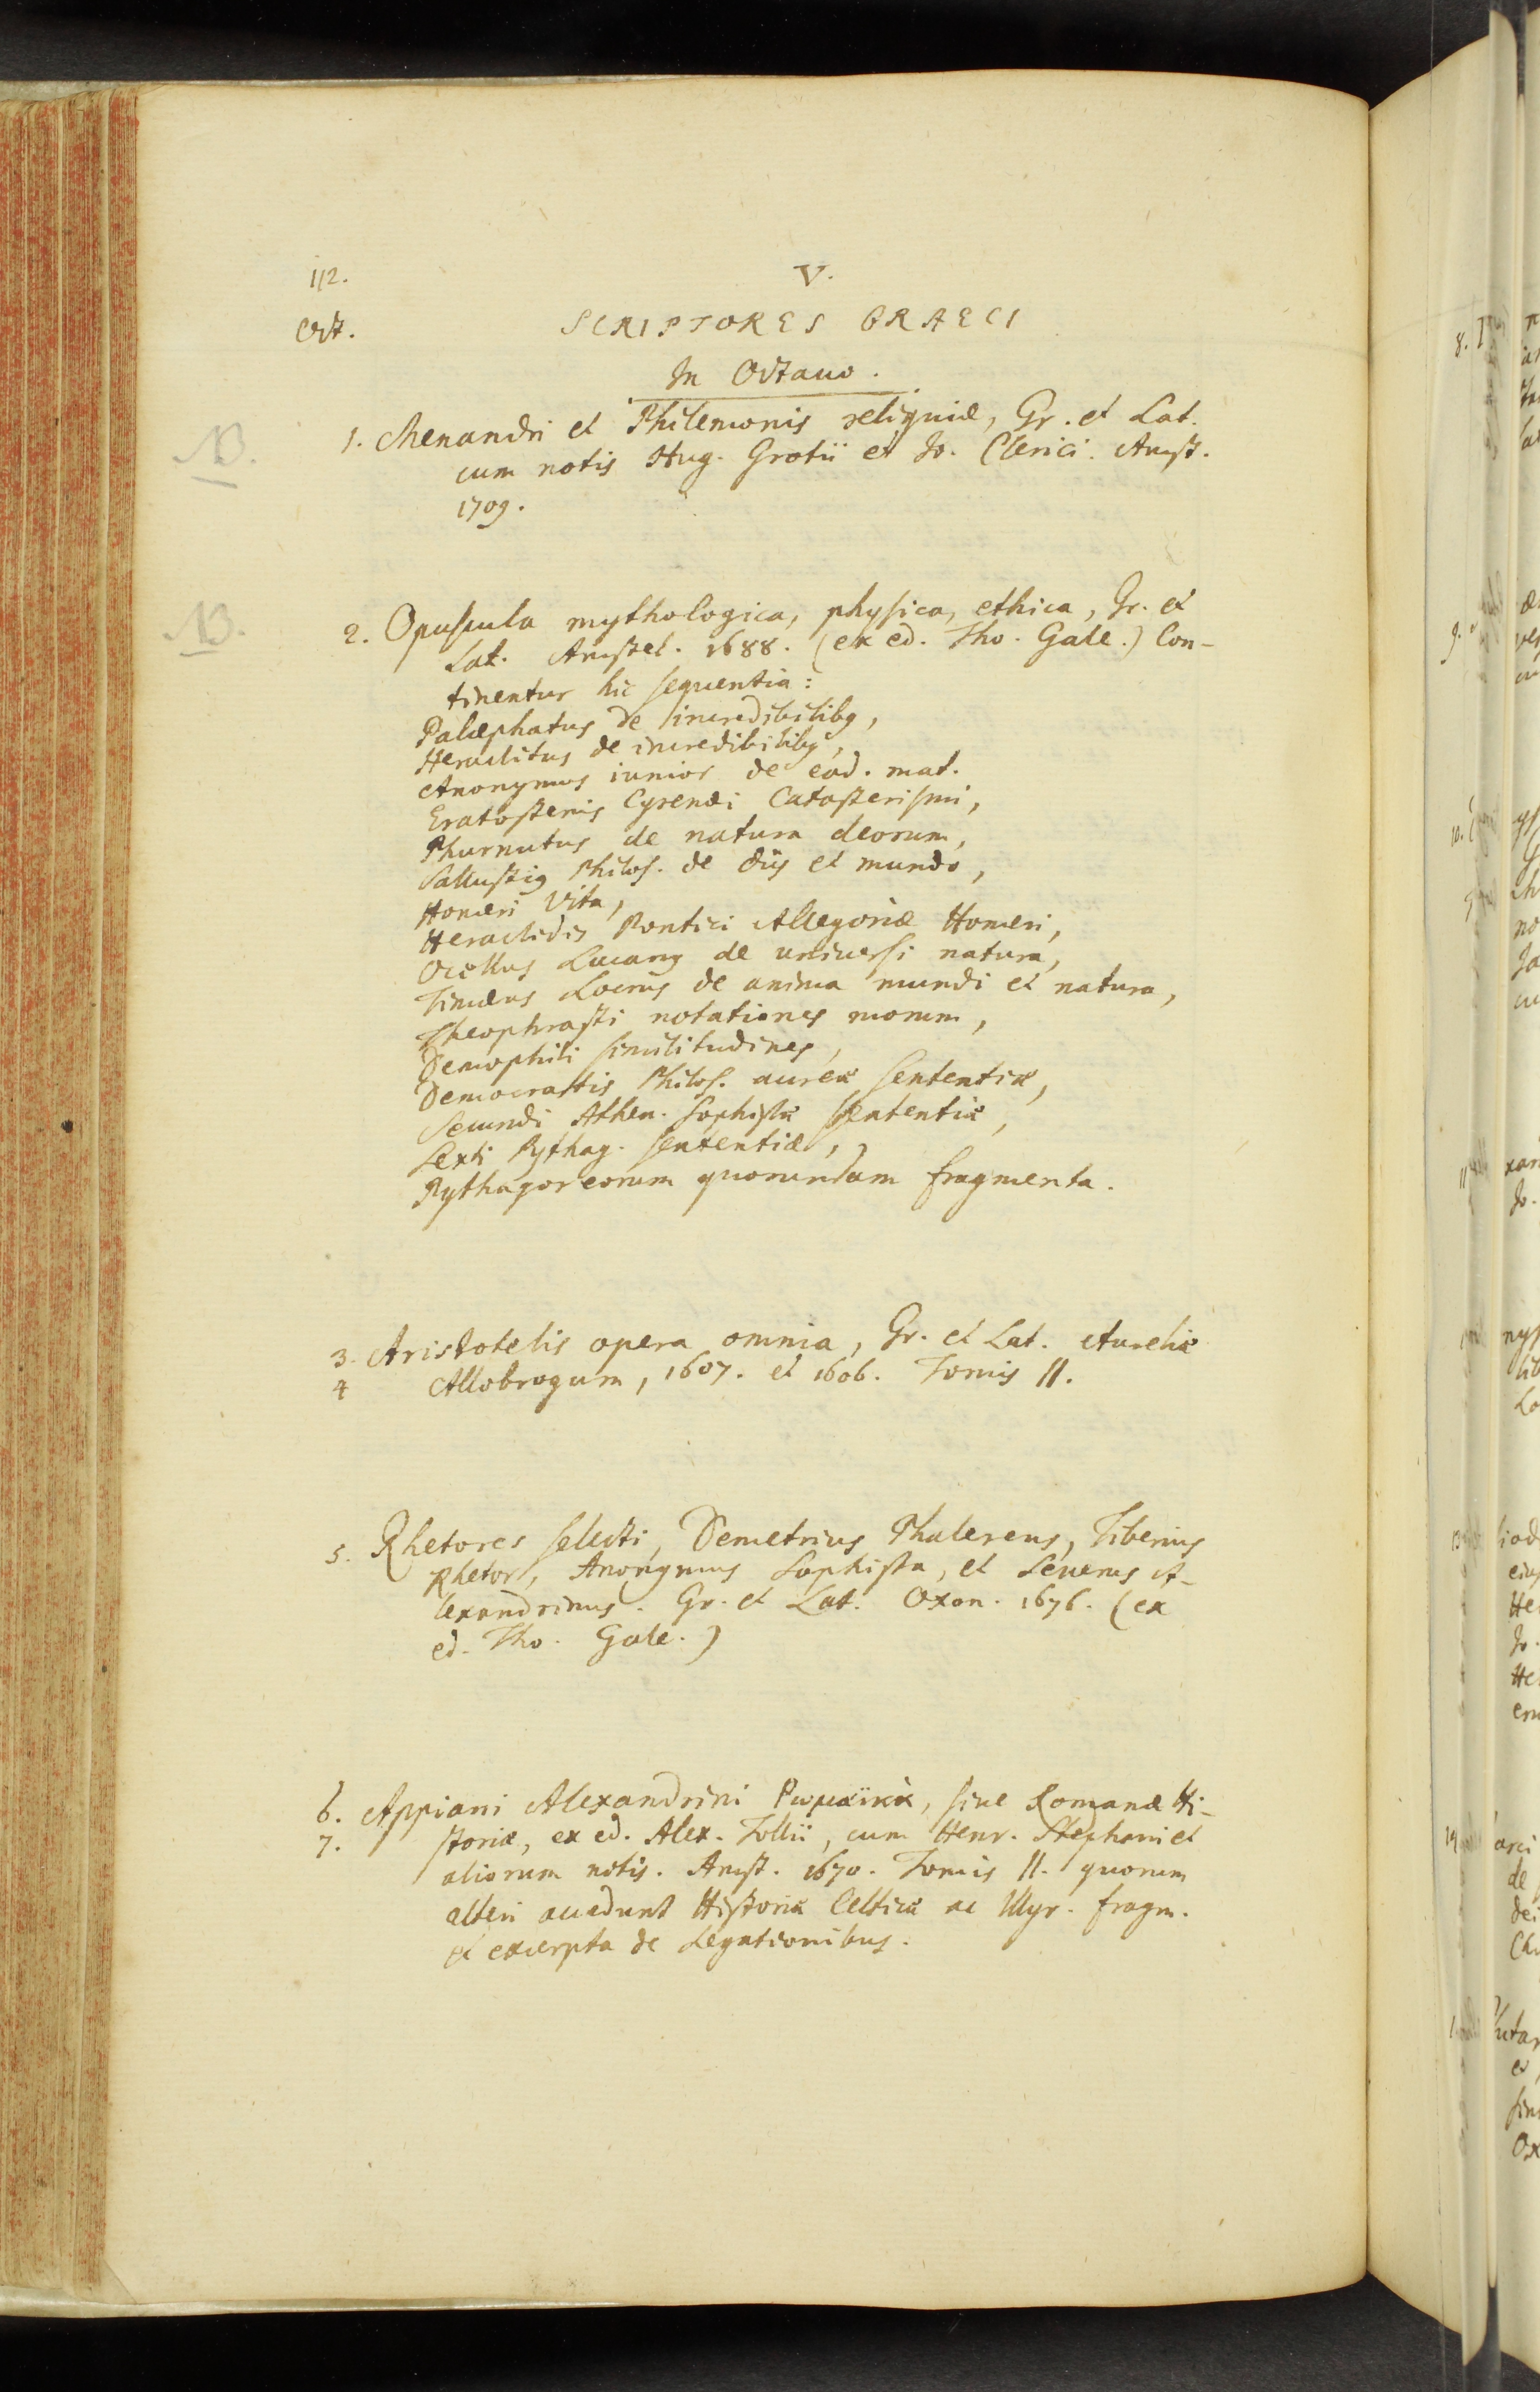 112.
V.
Oct.
SCRIPTORES GRAECI
In Octauo.
NB.
1. Menandri et Philemonis reliquiæ, Gr. et Lat.
cum notis Hug. Grotii et Jo. Clerici. Amst.
1709.
NB.
2. Opuscula mythologica, physica, ethica, Gr. et
Lat. Amstel. 1688. (ex ed. Tho. Gale.) Con-
tinentur hic sequentia:
Palæphatus de incredibilibꝰ,
Heraclitus de incredibilibꝰ,
Anonymus iunior de ead. mat.
Eratostenis Cyrenæi Catasterismi,
Phurnutus de natura deorum,
Sallustiꝰ Philos. de diis et mundo,
Homeri vita,
Heraclidis Pontici Allegoriæ Homeri,
Ocellus Lucanꝰ de universi natura,
Timæus Locrus de anima mundi et natura,
Theophrasti notationes morum,
Demophili similitudines,
Democrattis Philos. aureæ sententiæ,
Secundi Athen. Sophistæ sententiæ,
Sexti Pythag. sententiæ,
Pythagoreorum quorundam fragmenta.
3. Aristotelis opera omnia, Gr. et Lat. Aureliæ
4 Allobrogum, 1607. et 1606. Tomis II.
5. Rhetores selecti, Demetrius Phalereus, Tiberius
Rhetor, Anonymus Sophista, et Seuerus A-
lexandrinus. Gr. et Lat. Oxon. 1676. (ex
ed. Tho. Gale.)
6. Appiani Alexandrini Ρωμαϊκὰ, siue Romanæ Hi-
7. storiæ, ex ed. Alex. Tollii, cum Henr. Stephani et
aliorum notis. Amst. 1670. Tomis II. quorum
alteri accedunt Historiæ Celticæ ac Illyr. fragm.
et excerpta de Legationibus.